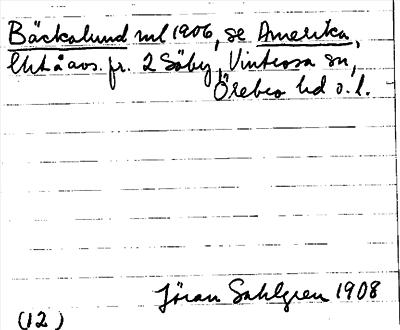 Bäckalund ml 1906, se Amerika,
lht å avs. fr. 2 Säby, Vintrosa sn,
Örebro hd o. l.
Jöran Sahlgren 1908
(12)